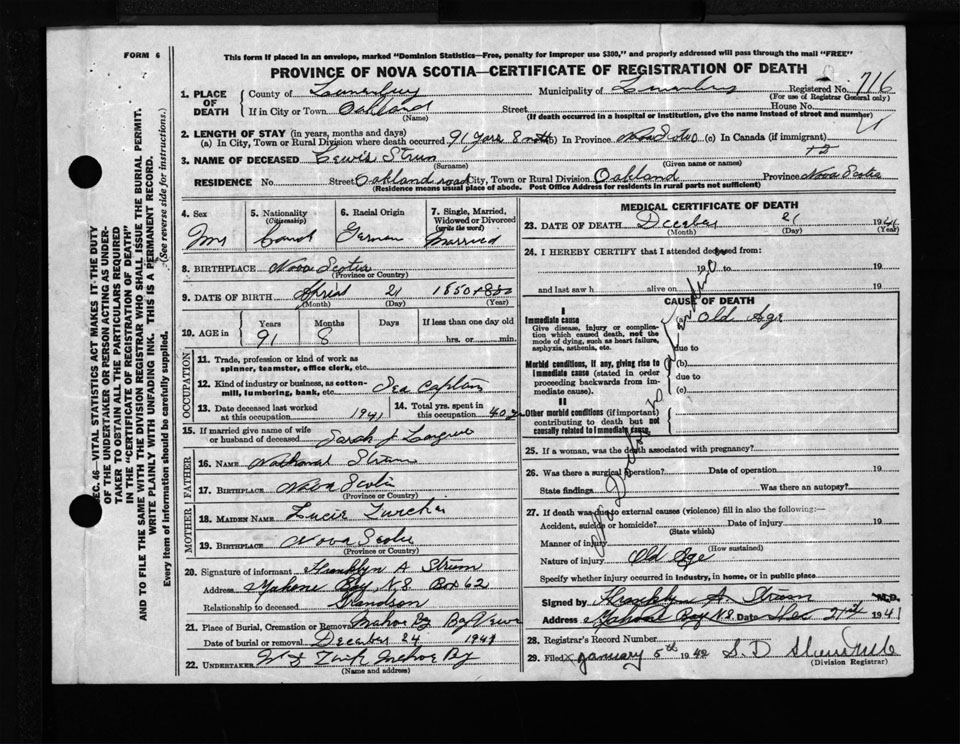 FORM 6
This form if placed in an envelope, marked "Dominion Statistics—Free, penalty for improper use $300," and properly addressed will pass through the mail "FREE"
PROVINCE OF NOVA SCOTIA—CERTIFICATE OF REGISTRATION OF DEATH
1. PLACE OF DEATH
County of Lunenburg Municipality of Lunenburg Registered No. 716
(For use of Registrar General only)
If in City or Town Oakland Street House No.
(Name) (If death occurred in a hospital or institution, give the name instead of street and number)
2. LENGTH OF STAY (in years, months and days)
(a) In City, Town or Rural Division where death occurred 91 years 8 mths (b) In Province Nova Scotia (c) In Canada (if immigrant)
3. NAME OF DECEASED Lewis Strum
(Surname) (Given name or names)
RESIDENCE No. Street Oakland road City, Town or Rural Division Oakland Province Nova Scotia
(Residence means usual place of abode. Post Office Address for residents in rural parts not sufficient)
4. Sex 5. Nationality (Citizenship) 6. Racial Origin 7. Single, Married, Widowed or Divorced (write the word)
German Married
8. BIRTHPLACE Nova Scotia
(Province or Country)
9. DATE OF BIRTH April 21 1850
(Month) (Day) (Year)
10. AGE in Years Months Days If less than one day old
91 8 hrs. or min.
OCCUPATION
11. Trade, profession or kind of work as spinner, teamster, office clerk, etc.
12. Kind of industry or business, as cotton-mill, lumbering, bank, etc. Sea Captain
13. Date deceased last worked at this occupation 1941 14. Total yrs. spent in this occupation 40
15. If married give name of wife or husband of deceased Sarah J
FATHER
16. NAME Strum
17. BIRTHPLACE Nova Scotia
(Province or Country)
MOTHER
18. MAIDEN NAME
19. BIRTHPLACE Nova Scotia
(Province or Country)
20. Signature of informant Franklyn A Strum
Address Mahone Bay, N.S. Box 62
Relationship to deceased Grandson
21. Place of Burial, Cremation or Removal Mahone Bay Bay View
Date of burial or removal December 24 1941
22. UNDERTAKER Mahone Bay
(Name and address)
MEDICAL CERTIFICATE OF DEATH
23. DATE OF DEATH December 21 1941
(Month) (Day) (Year)
24. I HEREBY CERTIFY that I attended deceased from:
19 to 19
and last saw h alive on 19
CAUSE OF DEATH
I
Immediate cause (a) Old Age
Give disease, injury or complication which caused death, not the mode of dying, such as heart failure, asphyxia, asthenia, etc.
due to
Morbid conditions, if any, giving rise to immediate cause (stated in order proceeding backwards from immediate cause).
(b)
due to
(c)
II
Other morbid conditions (if important) contributing to death but not causally related to immediate cause.
25. If a woman, was the death associated with pregnancy?
26. Was there a surgical operation? Date of operation 19
State findings Was there an autopsy?
27. If death was due to external causes (violence) fill in also the following:—
Accident, suicide or homicide? Date of injury 19
(State which)
Manner of injury
(How sustained)
Nature of injury Old Age
Specify whether injury occurred in industry, in home, or in public place
Signed by Franklyn A. Strum M.D.
Address Mahone Bay N.S. Date Dec 21st 1941
28. Registrar's Record Number
29. Filed January 5th 1942 S. D
(Division Registrar)
SEC. 46—VITAL STATISTICS ACT MAKES IT THE DUTY
OF THE UNDERTAKER OR PERSON ACTING AS UNDERTAKER TO OBTAIN ALL THE PARTICULARS REQUIRED
IN THE "CERTIFICATE OF REGISTRATION OF DEATH"
AND TO FILE THE SAME WITH THE DIVISION REGISTRAR WHO SHALL ISSUE THE BURIAL PERMIT.
WRITE PLAINLY WITH UNFADING INK. THIS IS A PERMANENT RECORD.
Every item of information should be carefully supplied. (See reverse side for instructions.)